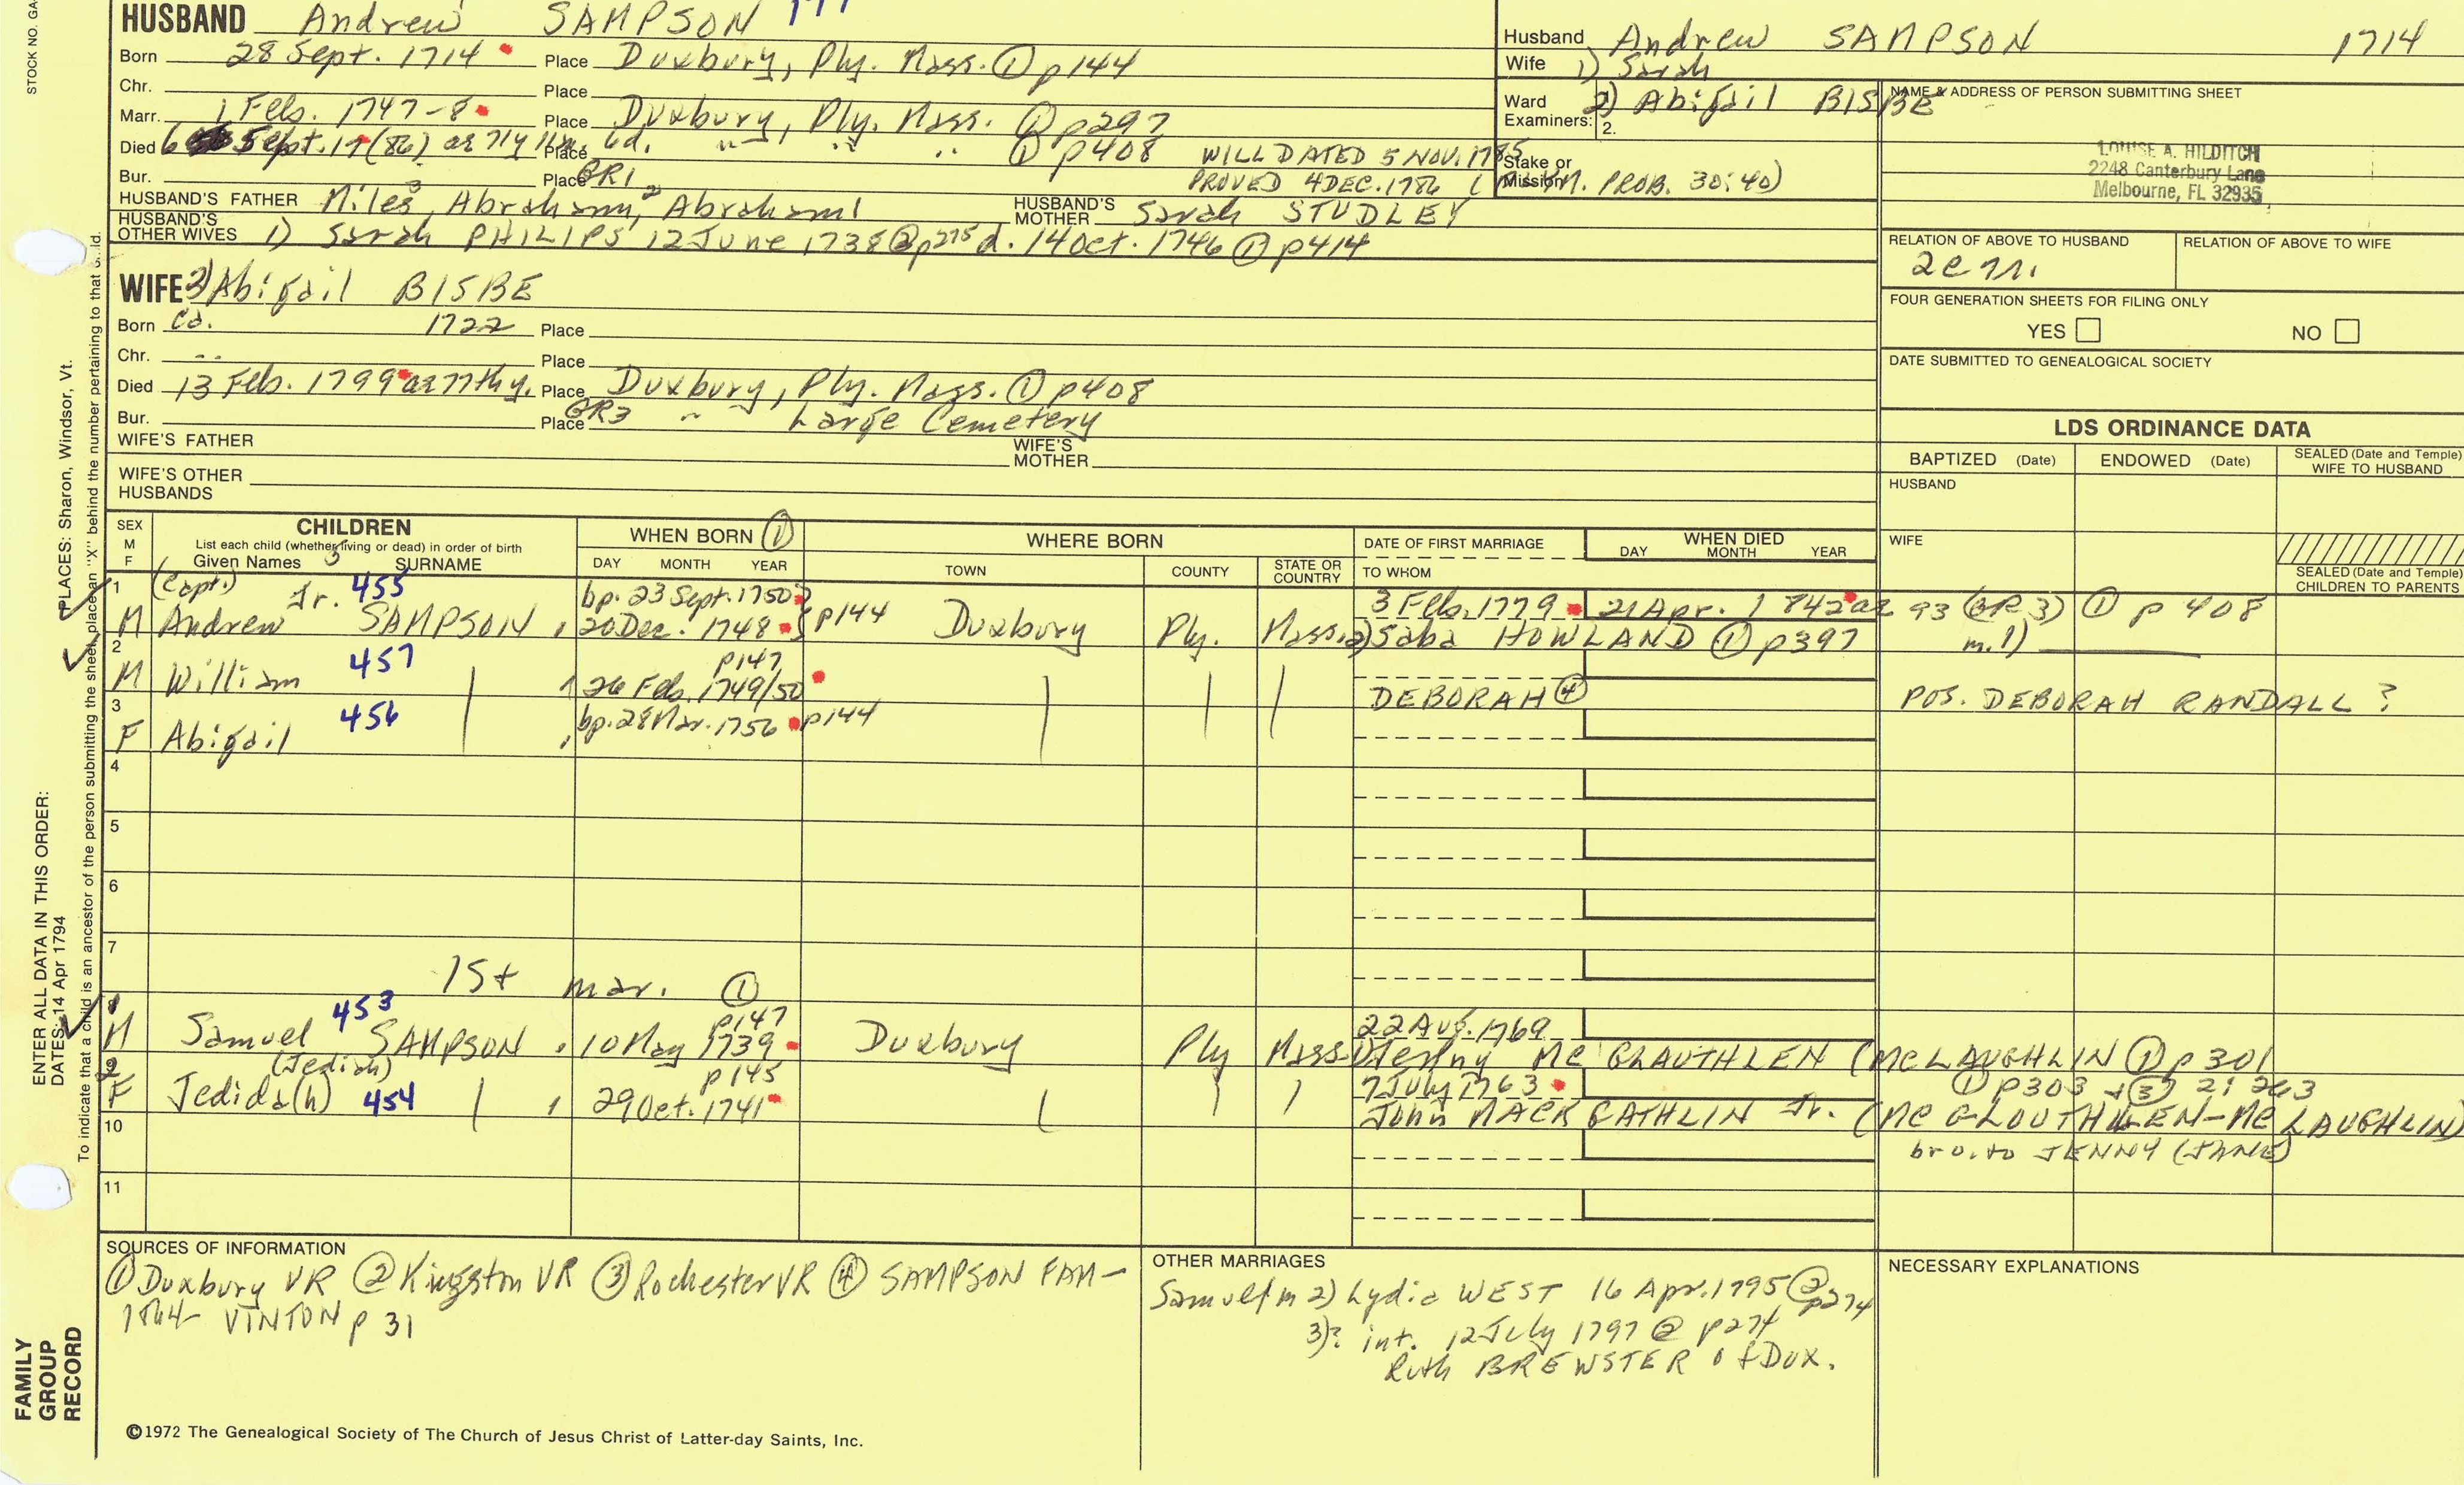 STOCK NO. GA
HUSBAND Andrew SAMPSON
Born 28 Sept. 1714 Place Duxbury, Ply. Mass. ① p144
Chr. Place
Marr. 1 Feb. 1747-8 Place Duxbury, Ply. Mass. ① p297
Died 6 Sept. 17(86) ae 71y 11m. 6d. Place " " " ① p408 WILL DATED 5 NOV. 1785
Bur. Place GR1 PROVED 4 DEC. 1786 ( PROB. 30:40)
HUSBAND'S FATHER Miles³, Abraham², Abraham¹ HUSBAND'S MOTHER Sarah STUDLEY
HUSBAND'S OTHER WIVES 1) Sarah PHILIPS 12 June 1738 ② p275 d. 14 Oct. 1746 ① p414
WIFE 2) Abigail BISBE
Born ca. 1722 Place
Chr. -- Place
Died 13 Feb. 1799 ae 77th y. Place Duxbury, Ply. Mass. ① p408
Bur. Place GR3 " " Large Cemetery
WIFE'S FATHER WIFE'S MOTHER
WIFE'S OTHER HUSBANDS
Husband Andrew SAMPSON 1714
Wife 1) Sarah
Ward 2) Abigail BISBE
Examiners: 2.
Stake or
Mission
NAME & ADDRESS OF PERSON SUBMITTING SHEET
LOUISE A. HILDITCH
2248 Canterbury Lane
Melbourne, FL 32935
RELATION OF ABOVE TO HUSBAND RELATION OF ABOVE TO WIFE
FOUR GENERATION SHEETS FOR FILING ONLY
YES NO
DATE SUBMITTED TO GENEALOGICAL SOCIETY
LDS ORDINANCE DATA
BAPTIZED (Date) ENDOWED (Date) SEALED (Date and Temple) WIFE TO HUSBAND
HUSBAND
WIFE
SEALED (Date and Temple) CHILDREN TO PARENTS
SEX M F CHILDREN WHEN BORN ① WHERE BORN DATE OF FIRST MARRIAGE WHEN DIED
List each child (whether living or dead) in order of birth
Given Names SURNAME DAY MONTH YEAR TOWN COUNTY STATE OR COUNTRY TO WHOM DAY MONTH YEAR
1 (Capt.) Jr. 455 bp. 23 Sept. 1750 3 Feb. 1779 21 Apr. 1842 ae 93 (GR3) ① p 408
M Andrew SAMPSON 20 Dec. 1748 p144 Duxbury Ply. Mass. 2) Saba HOWLAND ① p397 m. 1)
2 457 p147
M William 26 Feb. 1749/50 DEBORAH ④ POS. DEBORAH RANDALL ?
3 456 bp. 28 Mar. 1756 p144
F Abigail
4
5
6
7
1st mar. ①
8 453 p147 22 Aug. 1769
M Samuel SAMPSON 10 May 1739 Duxbury Ply Mass. McGLAUTHLEN (McLAUGHLIN ① p 301
(Jediah) p145 7 July 1763 ① p303 + ③ 2: 263
F Jedida(h) 454 29 Oct. 1741 John MACKGATHLIN Jr. (McGLOUTHLEN-McLAUGHLIN)
10 bro. to JENNY (JANE)
11
SOURCES OF INFORMATION
① Duxbury VR ② Kingston VR ③ Rochester VR ④ SAMPSON FAM-
1864 VINTON p 31
OTHER MARRIAGES
Samuel m 2) Lydia WEST 16 Apr. 1795 ② p274
3)? int. 12 July 1797 @ p274
Ruth BREWSTER of Dux.
NECESSARY EXPLANATIONS
©1972 The Genealogical Society of The Church of Jesus Christ of Latter-day Saints, Inc.
FAMILY
GROUP
RECORD
ENTER ALL DATA IN THIS ORDER:
DATES: 14 Apr 1794
PLACES: Sharon, Windsor, Vt.
To indicate that a child is an ancestor of the person submitting the sheet, place an "X" behind the number pertaining to that